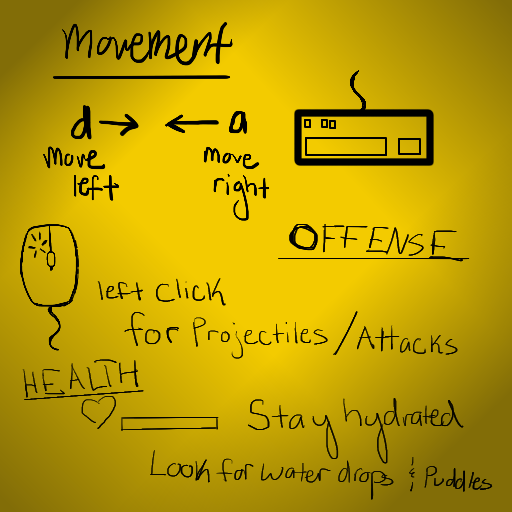 Movement
d → ← a
Move left
Move right
OFFENSE
left click
for Projectiles / Attacks
HEALTH
Stay hydrated
Look for water drops & Puddles